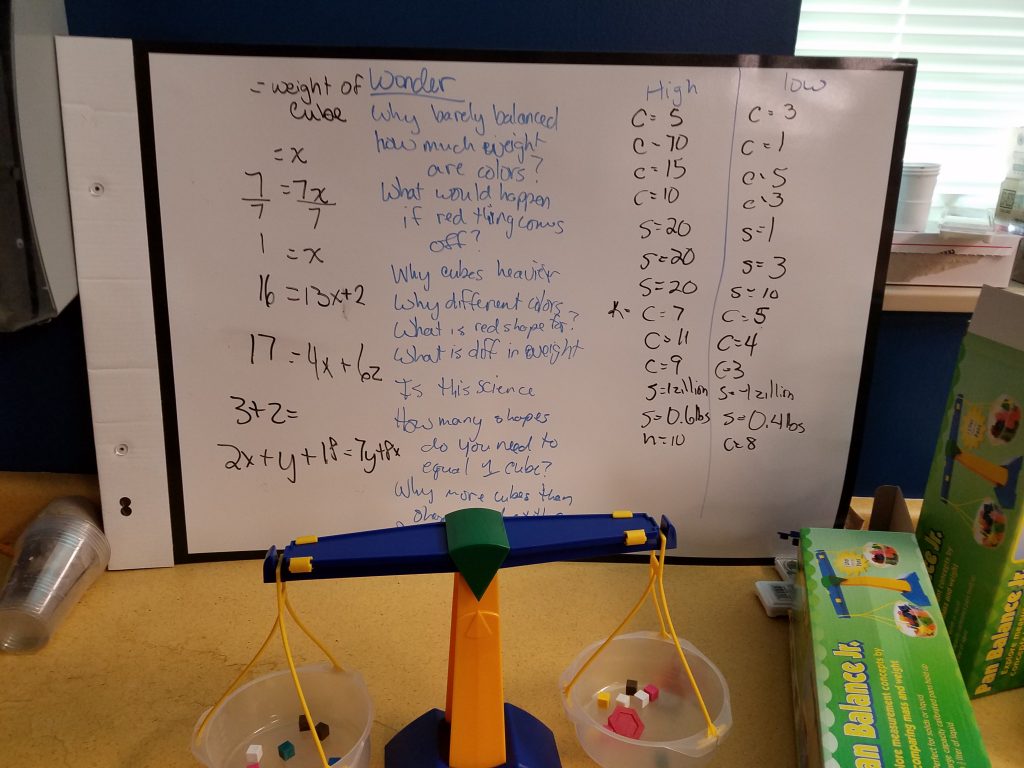 = weight of
cube
= x
7/7 = 7x/7
1 = x
16 = 13x+2
17 = 4x + 6z
3+2=
2x+y+18=7y+8x
Wonder
Why barely balanced
how much weight
are colors?
What would happen
if red thing comes
off?
Why cubes heavier
Why different colors
What is red shape for?
What is diff in weight
Is this science
How many shapes
do you need to
equal 1 cube?
Why more cubes than
High
C = 5
C = 70
C = 15
C = 10
S = 20
S = 20
S = 20
C = 7
C = 11
C = 9
S = 1zillion
S = 0.6lbs
n = 10
low
C = 3
C = 1
C = 5
C = 3
S = 1
S = 3
S = 10
C = 5
C = 4
C = 3
S = -1zillion
S = 0.4lbs
C = 8
Pan Balance Jr.
an Balance Jr.
ore measurement concepts by
comparing mass and weight